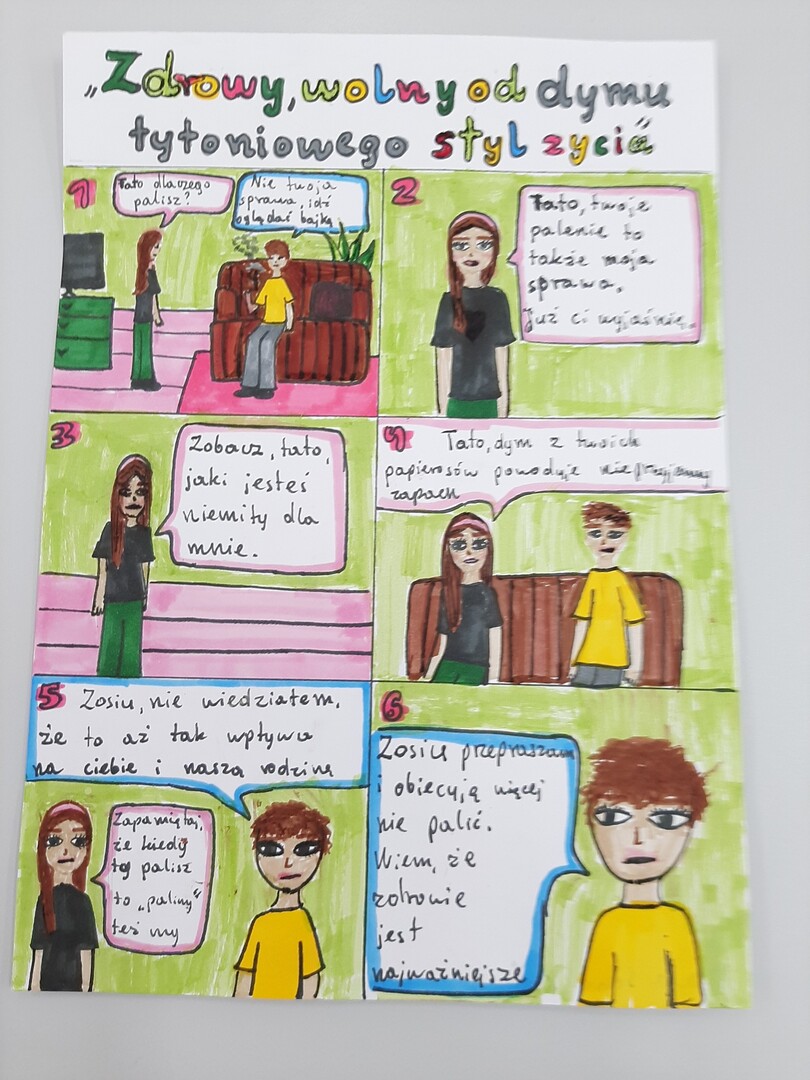 „Zdrowy, wolny od dymu
tytoniowego styl życia"
1
Tato dlaczego
palisz?
Nie twoja
sprawa, idź
oglądać bajkę
2
Tato, twoje
palenie to
także moja
sprawa.
Już ci wyjaśnię.
3
Zobacz, tato,
jaki jesteś
niemiły dla
mnie.
4
Tato, dym z twoich
papierosów powoduje nieprzyjemny
zapach
5
Zosiu, nie wiedziałem,
że to aż tak wpływa
na ciebie i naszą rodzinę
Zapamiętaj,
że kiedy
ty palisz
to „palimy"
też my
6
Zosiu przepraszam
i obiecują więcej
nie palić.
Wiem, że
zdrowie
jest
najważniejsze